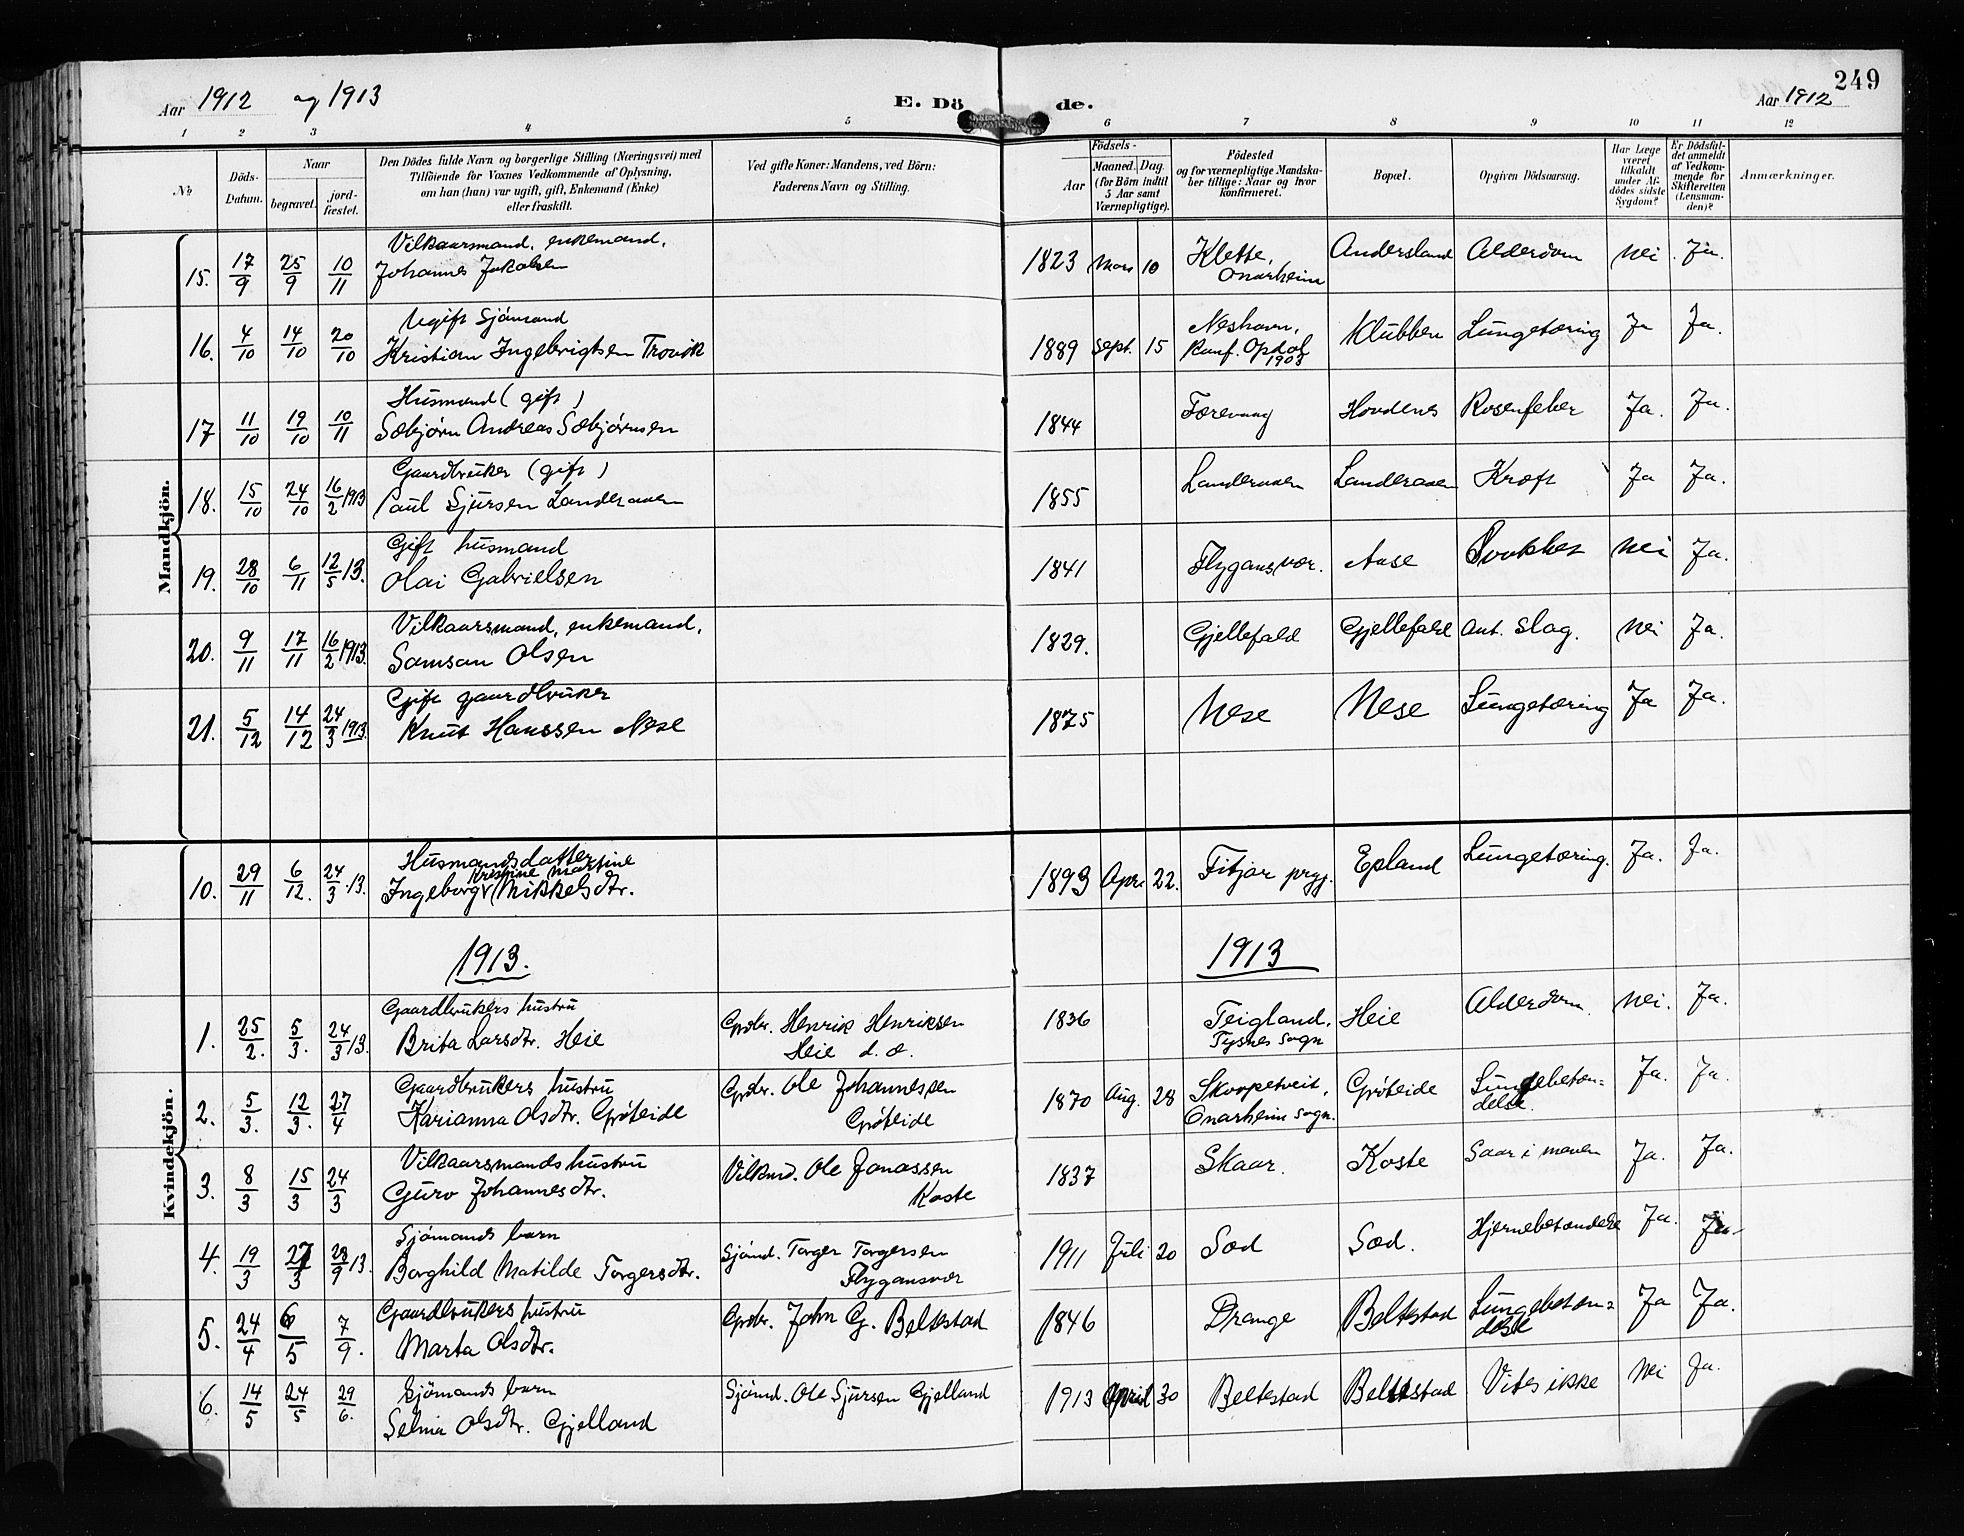 249
Aar 1912 og 1913 E. Dö de. Aar 1912
1 2 3 4 5 6 7 8 9 10 11 12
No
Döds-Datum.
Naar
begravet.
jord-fæstet.
Den Dödes fulde Navn og borgerlige Stilling (Næringsvei) med
Tilföiende for Voxnes Vedkommende af Oplysning,
om han (han) var ugift, gift, Enkemand (Enke)
eller fraskilt.
Ved gifte Koner: Mandens, ved Börn:
Faderens Navn og Stilling.
Födsels-
Aar
Maaned. Dag.
(for Börn indtil
5 Aar samt
Værnepligtige).
Födested
og for værnepligtige Mandska-
ber tillige: Naar og hvor
konfirmeret.
Bopæl.
Opgiven Dödsaarsag.
Har Læge
været
tilkaldt
under Af-
dödes sidste
Sygdom?
Er Dödsfal-
det anmeldt
af Vedkom-
mende for
Skifteretten
(Lensman-
den)?
Anmærkninger.
Mandkjön.
Vilkaarsmand, enkemand,
15. 17/9 25/9 10/11 Johannes Jakobsen 1823 Mars 10 Klette, Onarheim Andersland Alderdom Nei Ja.
Ugift Sjömand
16. 4/10 14/10 20/10 Kristian Ingebrigtsen Trovik 1889 Sept. 15 Neshavn, Konf. Opdal 1903 Klubben Lungetæring Ja Ja.
Husmand (gift)
17 11/10 19/10 10/11 Sæbjörn Andreas Sæbjörnsen 1844 Færevaag Hovdenes Rosenfeber Ja. Ja.
Gaardbruker (gift)
18. 15/10 24/10 16/2 1913 Paul Sjursen Landeraaen 1855 Landeraaen Landeraaen Kræft Ja Ja.
Gift husmand
19. 28/10 6/11 12/5 13. Olai Gabrielsen 1841 Flygansvær. Aase Nei Ja.
Vilkaarsmand, enkemand,
20. 9/11 17/11 16/2 1913. Samson Olsen 1829. Gjellefald Gjellefald Ant. slag. Nei Ja.
Gift gaardbruker
21. 5/12 14/12 24/3 1913. Knut Hanssen Nese 1875 Nese Nese Lungetæring Ja Ja.
Kvindekjön.
Husmandsdatter
Kristine Martine
10. 29/11 6/12. 24/3 13. Ingeborg Mikkelsdtr. 1893 Apr. 22. Fitjar prgj. Epland Lungetæring. Ja. Ja.
1913. 1913
Gaardbrukers hustru
1. 25/2. 5/3. 24/3 13. Brita Larsdtr. Heie Grdbr. Henrik Henriksen Heie d. æ. 1836 Teigland, Tysnes sogn Heie Alderdom. Nei. Ja.
Gaardbrukers hustru
2. 5/3. 12/3. 27/4 Karianna Olsdtr. Gröteide Grdbr. Ole Johannessen Gröteide 1870 Aug. 28 Skorpetveit, Onarheim sogn. Gröteide Lungebeton=
delse. Ja. Ja.
Vilkaarsmands hustru
3. 8/3 15/3 24/3 Guro Johannesdtr. Vilkmd. Ole Jonassen Koste 1837 Skaar. Koste Saar i maven Ja. Ja.
Sjömands barn
4. 19/3 27/3 28/9 13. Borghild Matilde Torgersdtr. Sjömd. Torger Torgersen Flygansvær 1911 Juli 20 Sæd Sæd. Hjernebetændelse Ja. Ja.
Gaardbrukers hustru
5. 24/4 6/5 7/9. Marta Olsdtr. Grdbr. John G. Beltestad 1846 Drange Beltestad Lungebeton=
delse Ja Ja.
Sjömands barn
6. 14/5 24/5 29/6. Selma Olsdtr. Gjelland Sjömd. Ole Sjursen Gjelland 1913 April 30 Beltestad Beltestad Vites ikke Nei Ja.